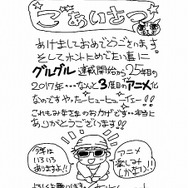 ごあいさつ
あけましておめでとうございます。
そしてホントおめでたい事に
グルグル連載開始から25年目の
2017年・・・なんと3度目のアニメ化
なのですやったーヒューヒューイエー!!
これもみなさまのおかげです・・本当に
ありがとうございます!!
今年は
いろいろ
ありますよ!!
アニメ
楽しみ